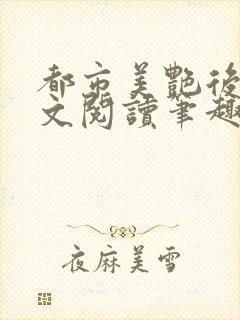 都市美艷後
文閱讀筆趣
夜麻美雪